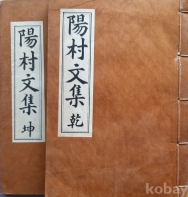 陽村文集 坤
陽村文集 乾
kobay